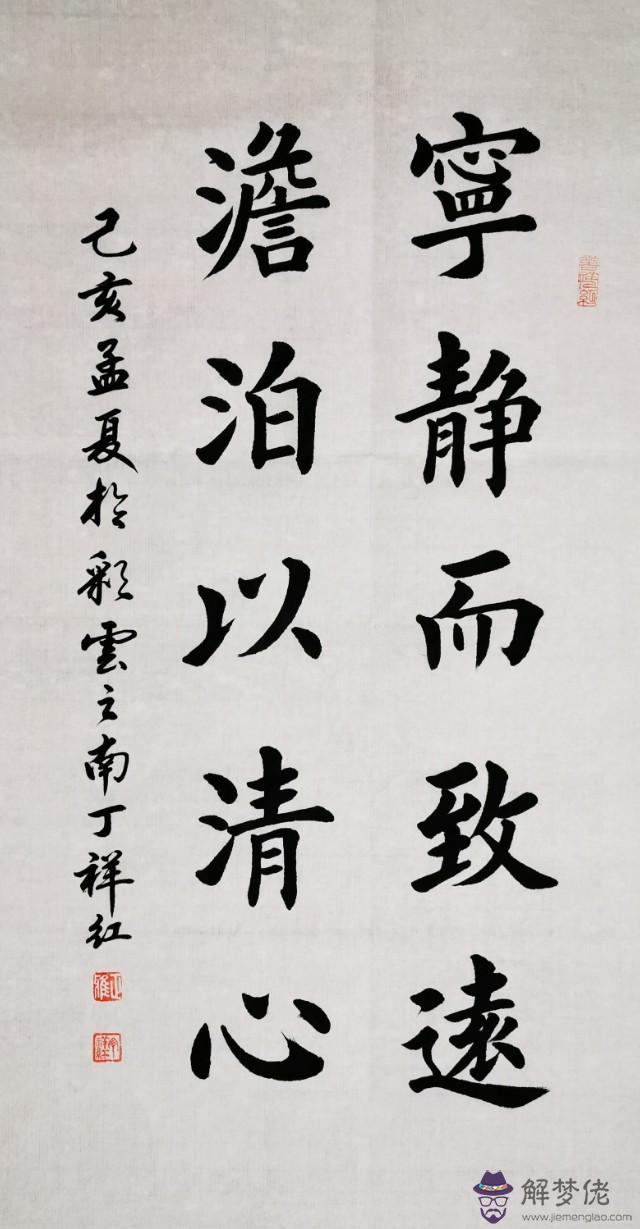 寧静而致遠
澹泊以清心
己亥孟夏於彩雲之南丁祥红
解梦佬
www.jiemenglao.com